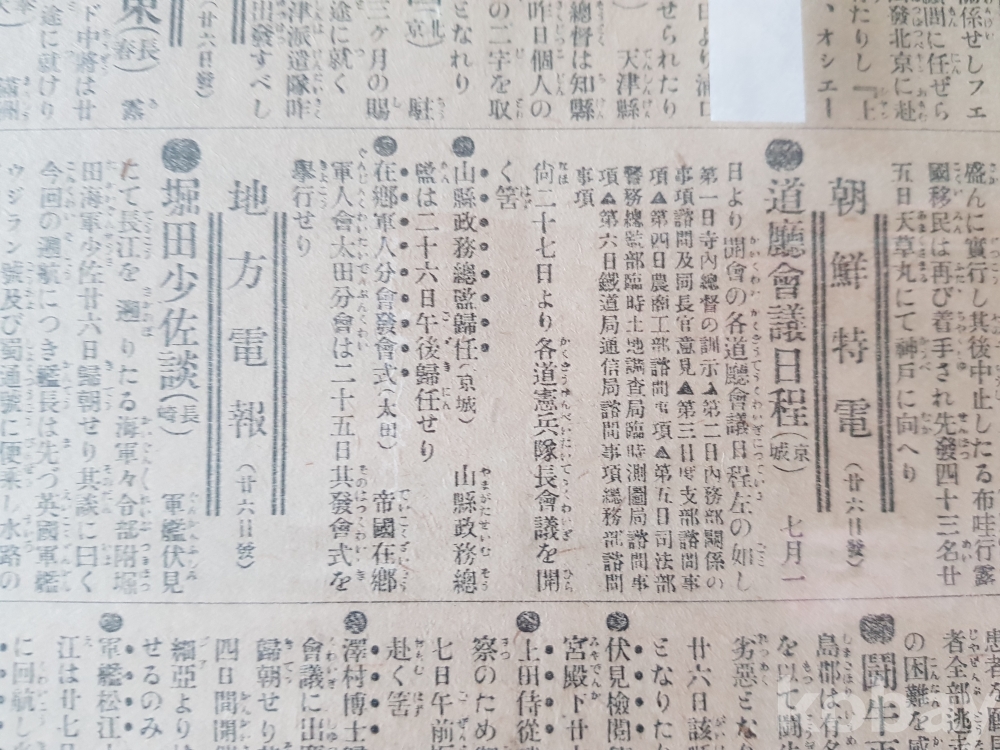 關係せしフェ
顧問に任ぜら
直發北京に赴
たりし『上
、オシェー
日より浦口
せられたり
天津縣
總督は知縣
昨日個人の
の二字を取
となれり
駐
三ヶ月の賜
途に就く
津派遣隊昨
出發すべし
(廿六日發)
東(長春)
露
ド中將は廿
途に就けり
盛んに實行し其後中止したる布哇行露
國移民は再び着手され先發四十三名廿
五日天草丸にて神戸に向へり
朝鮮特電(廿六日發)
道廳會議日程(京城) 七月一
日より開會の各道廳會議日程左の如し
第一日寺內總督の訓示▲第二日內務部關係の
事項諮問及同長官意見▲第三日度支部諮問事
項▲第四日農商工部諮問事項▲第五日司法部
警務總監部臨時土地調査局臨時測圖局諮問事
項▲第六日鐵道局通信局諮問事項總務部諮問
事項
尙二十七日より各道憲兵隊長會議を開
く筈
山縣政務總監歸任(京城) 山縣政務總
監は二十六日午後歸任せり
在鄕軍人分會發會式(太田) 帝國在鄕
軍人會太田分會は二十五日其發會式を
擧行せり
地方電報(廿六日發)
堀田少佐談(長崎) 軍艦伏見
たて長江を遡りたる海軍々令部附堀
田海軍少佐廿六日歸朝せり其談に曰く
今回の遡航につき艦長は先づ英國軍艦
ウジラン號及び蜀通號に便乘し水路の
患者を
者全部逃
の困難を感
鬪牛
島郡は有名
を以て鬪
劣惡とな
廿六日該
となりた
伏見檢閱
宮殿下廿
上田侍從
察のため
七日午前
赴く筈
澤村博士
會議に出
歸朝せり
四日間開
細亞より
せるのみ
軍艦松江
江は廿七
に回航し
koba